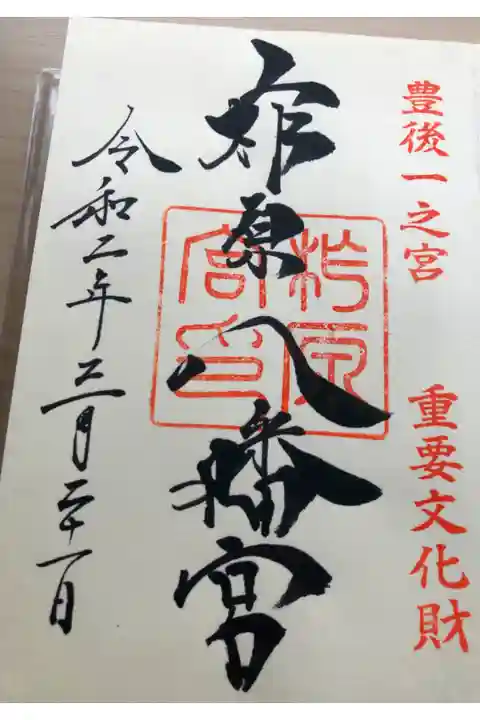 豊後一之宮 重要文化財
柞原八幡宮
柞原宮印
令和二年三月二十一日